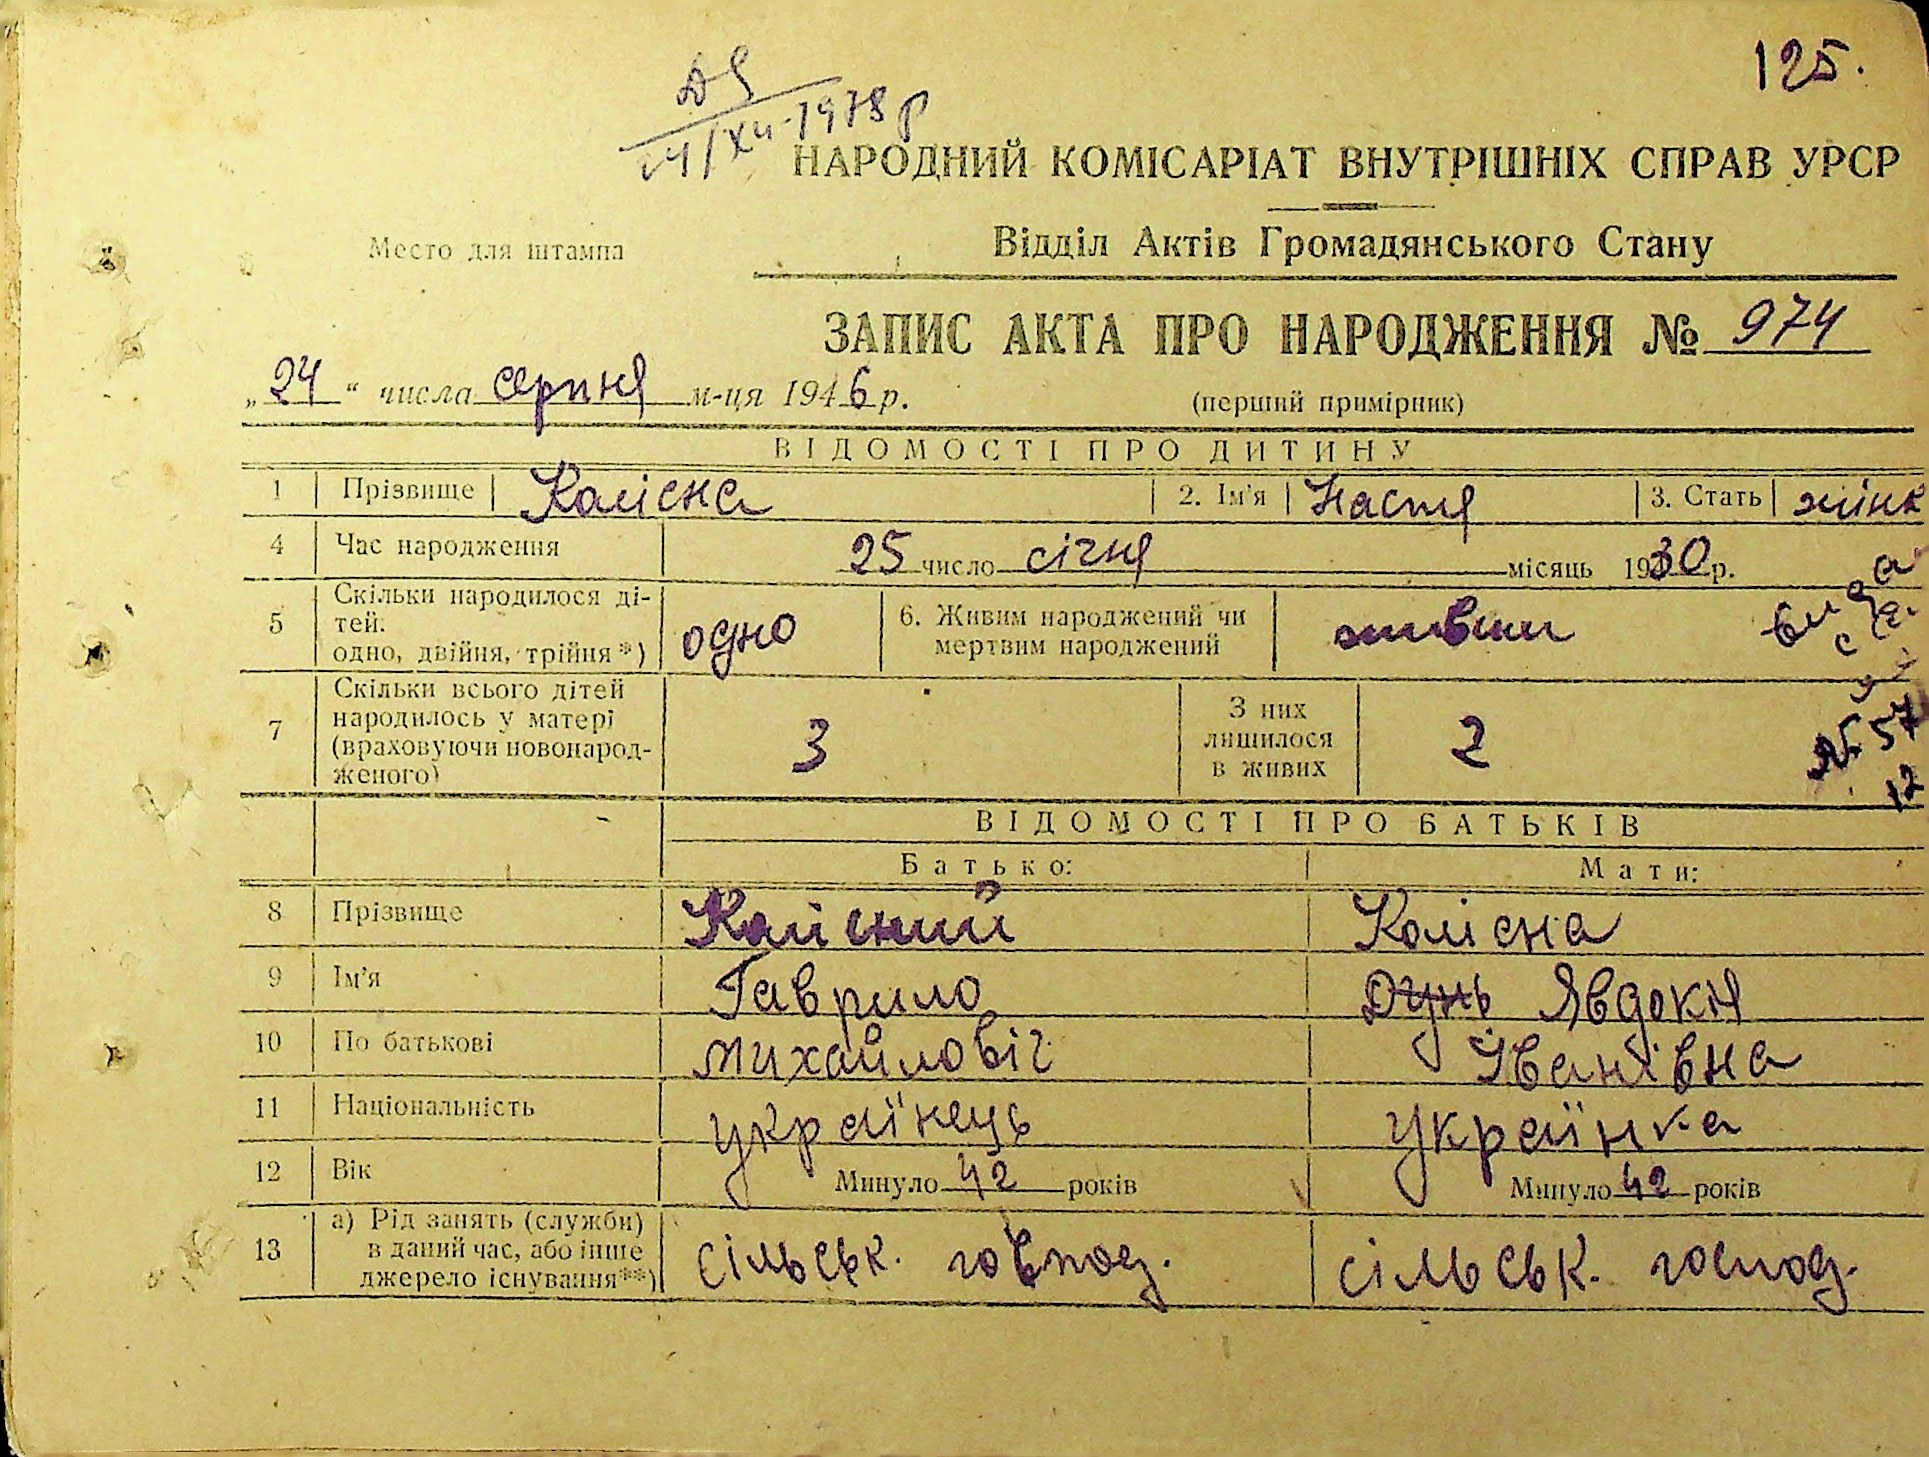 125.
ДЯ
24/XII-1978 р
НАРОДНИЙ КОМІСАРІАТ ВНУТРІШНІХ СПРАВ УРСР
Место для штампа
Відділ Актів Громадянського Стану
ЗАПИС АКТА ПРО НАРОДЖЕННЯ № 974
„24“ числа серпня м-ця 1946 р.
(перший примірник)
ВІДОМОСТІ ПРО ДИТИНУ
1 Прізвище Колісна 2. Ім'я Настя 3. Стать жінк
4 Час народження 25 число січня місяць 1930 р.
5 Скільки народилося ді-
тей:
одно, двійня, трійня*) одно 6. Живим народжений чи
мертвим народжений живим
7 Скільки всього дітей
народилось у матері
(враховуючи новонарод-
женого) 3 З них
лишилося
в живих 2
№ 57
12
ВІДОМОСТІ ПРО БАТЬКІВ
Батько: Мати:
8 Прізвище Колісний Колісна
9 Ім'я Гаврило Дунь Явдокія
10 По батькові Михайловіч Іванівна
11 Національність українець українка
12 Вік Минуло 42 років Минуло 42 років
13 а) Рід занять (служби)
в даний час, або інше
джерело існування**) сільськ. господ. сільськ. господ.